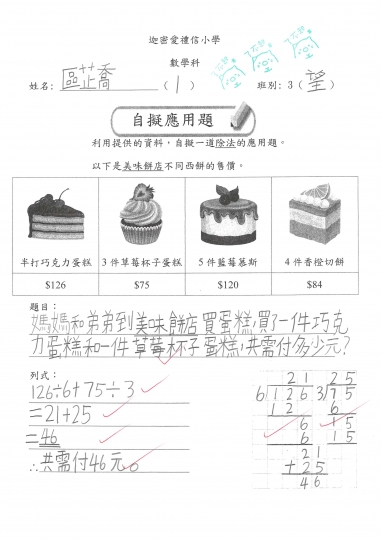 迦密愛禮信小學
數學科
姓名: 區芷喬 ( 1 ) 班別: 3 ( 望 )
自擬應用題
利用提供的資料，自擬一道除法的應用題。
以下是美味餅店不同西餅的售價。
半打巧克力蛋糕 3 件草莓杯子蛋糕 5 件藍莓慕斯 4 件香橙切餅
$126 $75 $120 $84
題目：
媽媽和弟弟到美味餅店買蛋糕,買了一件巧克
力蛋糕和一件草莓杯子蛋糕,共需付多少元?
列式：
126÷6+75÷3
=21+25
=46
∴共需付46元。
21 25
6)126 3)75
12 6
6 15
6 15
21
+25
46